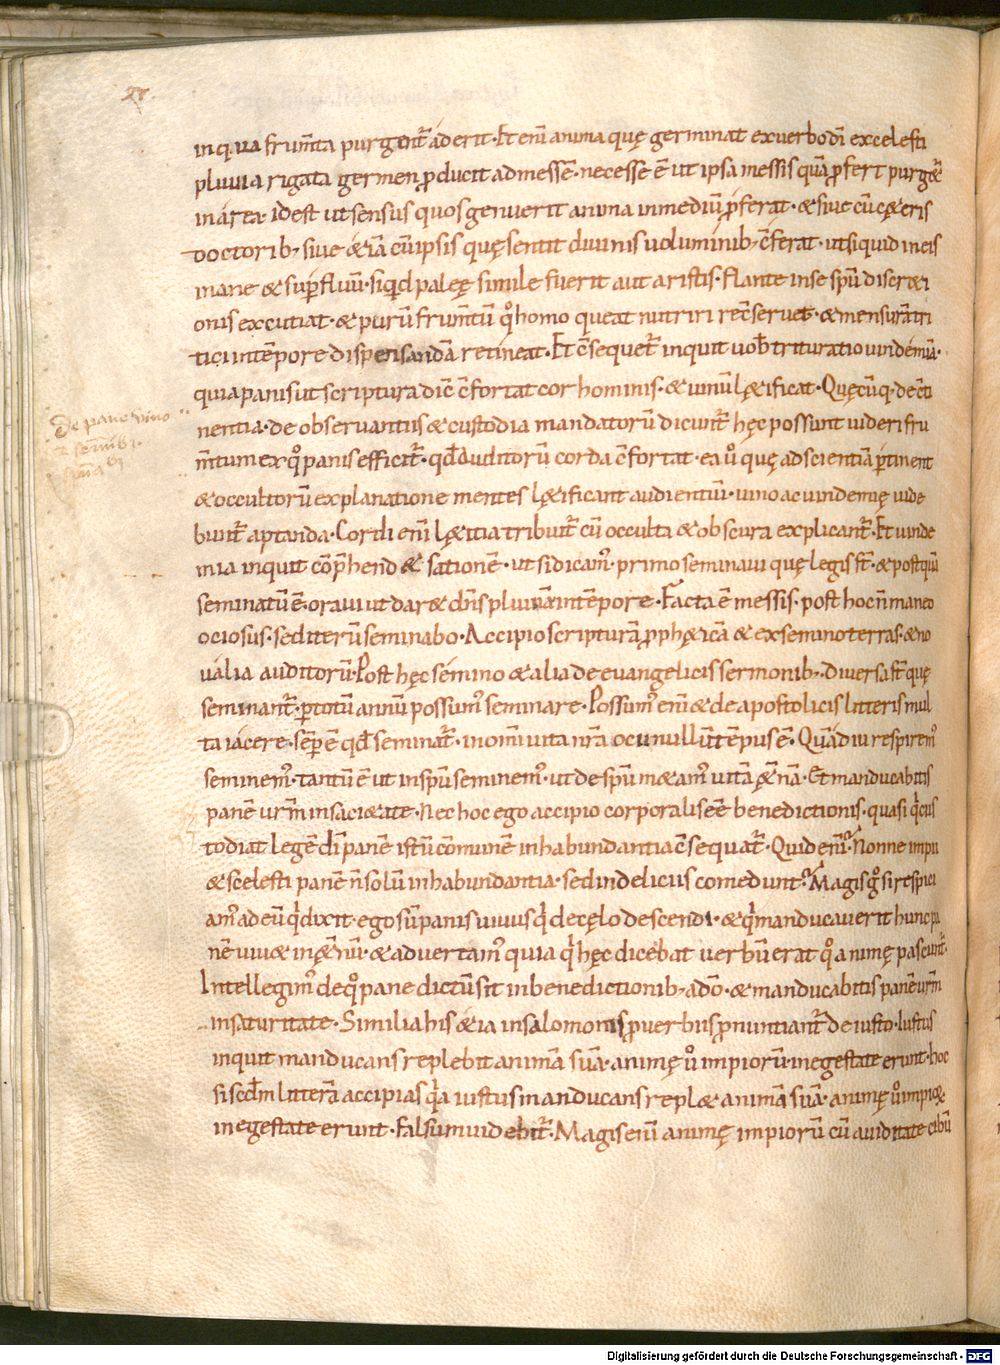 28
in qua frum̄ta purgent᷒ aderit · Et eni᷒ anima quę germinat ex uerbo dī excelesti
pluuia rigata germen ꝓducit ad messē · necesse ē ut ipsa messis quā ꝓfert purg&᷒
in area · idest ut sensus quos genuerit anima in mediū ꝓferat · & siue cū c&eris
doctorib; siue &iā cū ipsis quę sentit diuinis uoluminib; c̄ferat · ut siquid in eis
inane & sup̄fluū · siqid paleę simile fuerit aut aristis · flante in se spū discr&i
onis excutiat · & purū frum̄tū q̊ homo queat nutriri rec̄seruet · & mensurā tri
tici in tēpore dispensandā retineat · Et c̄sequet᷒ inquit uob̄ trituratio uindemiā ·
quia panis ut scriptura dic̄ c̄fortat cor hominis · & uinū l&ificat · Quęcūq; de c̄ti
nentia · de obseruantiis & custodia mandatorū dicunt᷒ hęc possunt uideri fru
m̄tum ex q̊ panis efficit᷒ · qd̄ auditorū corda c̄fortat · ea ů quę ad scientiā ꝑtinent
& occultorū explanatione mentes l&ificant audientiū · uino ac uindemię uide
bunt᷒ aptanda · Cordi eni᷒ l&itia tribuit᷒ cū occulta & obscura explicant᷒ · Et uinde
mia inquit cōp̄hend& sationē · ut si dicam᷒ · primo seminaui quę legis st̄ · & postquā
seminatū ē · oraui ut dar& dn̄s pluuiā in tēpore · Facta ē messis · post hoc n̄ maneo
ociosus · sed iterū seminabo · Accipio scripturā ꝓph&icā & ex semino terras · & no
ualia auditorū · Post hęc semino & alia de euangelicis sermonib; · diuersa st̄ quę
seminant᷒ · ꝑ totū annū possum᷒ seminare · Possum᷒ eni᷒ & de apostolicis litteris mul
ta iacere · sēꝑ ē qd̄ seminat᷒ · in omi uita nr̄a ociu nullū tēpus ē · Quādiu respirem᷒
seminem᷒ · tantū ē ut in spū seminem᷒ · ut de spū m&am᷒ uitā &̄nā · Et manducabitis
panē urm̄ in saci&ate · Nec hoc ego accipio corporalis eē benedictionis · quasi qi cus
todiat legē dī panē istū cōmunē in habundantia c̄sequat᷒ · Quid eni᷒ · Nonne impii
& scelesti panē n̄ solū in habundantia · sed in deliciis comedunt · Magis g̊ si respici
am᷒ ad eū qi dixit · ego sū panis uiuus qi de cęlo descendi · & qi manducauerit hunc pa
nē uiu& in &̄nū · & aduertam᷒ quia qi hęc dicebat uerbū erat q̊ animę pascunt᷒ ·
Intellegim᷒ de q̊ pane dictū sit in benedictionib; a dō · & manducabitis panē urm̄
in saturitate · Similia his &iā in salomonis ꝓuerbiis ꝓnuntiant᷒ de iusto · Iustus
inquit manducans replebit animā suā · animę ů impiorū in egestate erunt · hoc
si scdm̄ litterā accipias qa iustus manducans repl& animā suā · animę ů impior
in egestate erunt · Falsum uidebit᷒ · Magis eni᷒ animę impiorū cū auiditate cibū
De pane vino
Digitalisierung gefördert durch die Deutsche Forschungsgemeinschaft - DFG